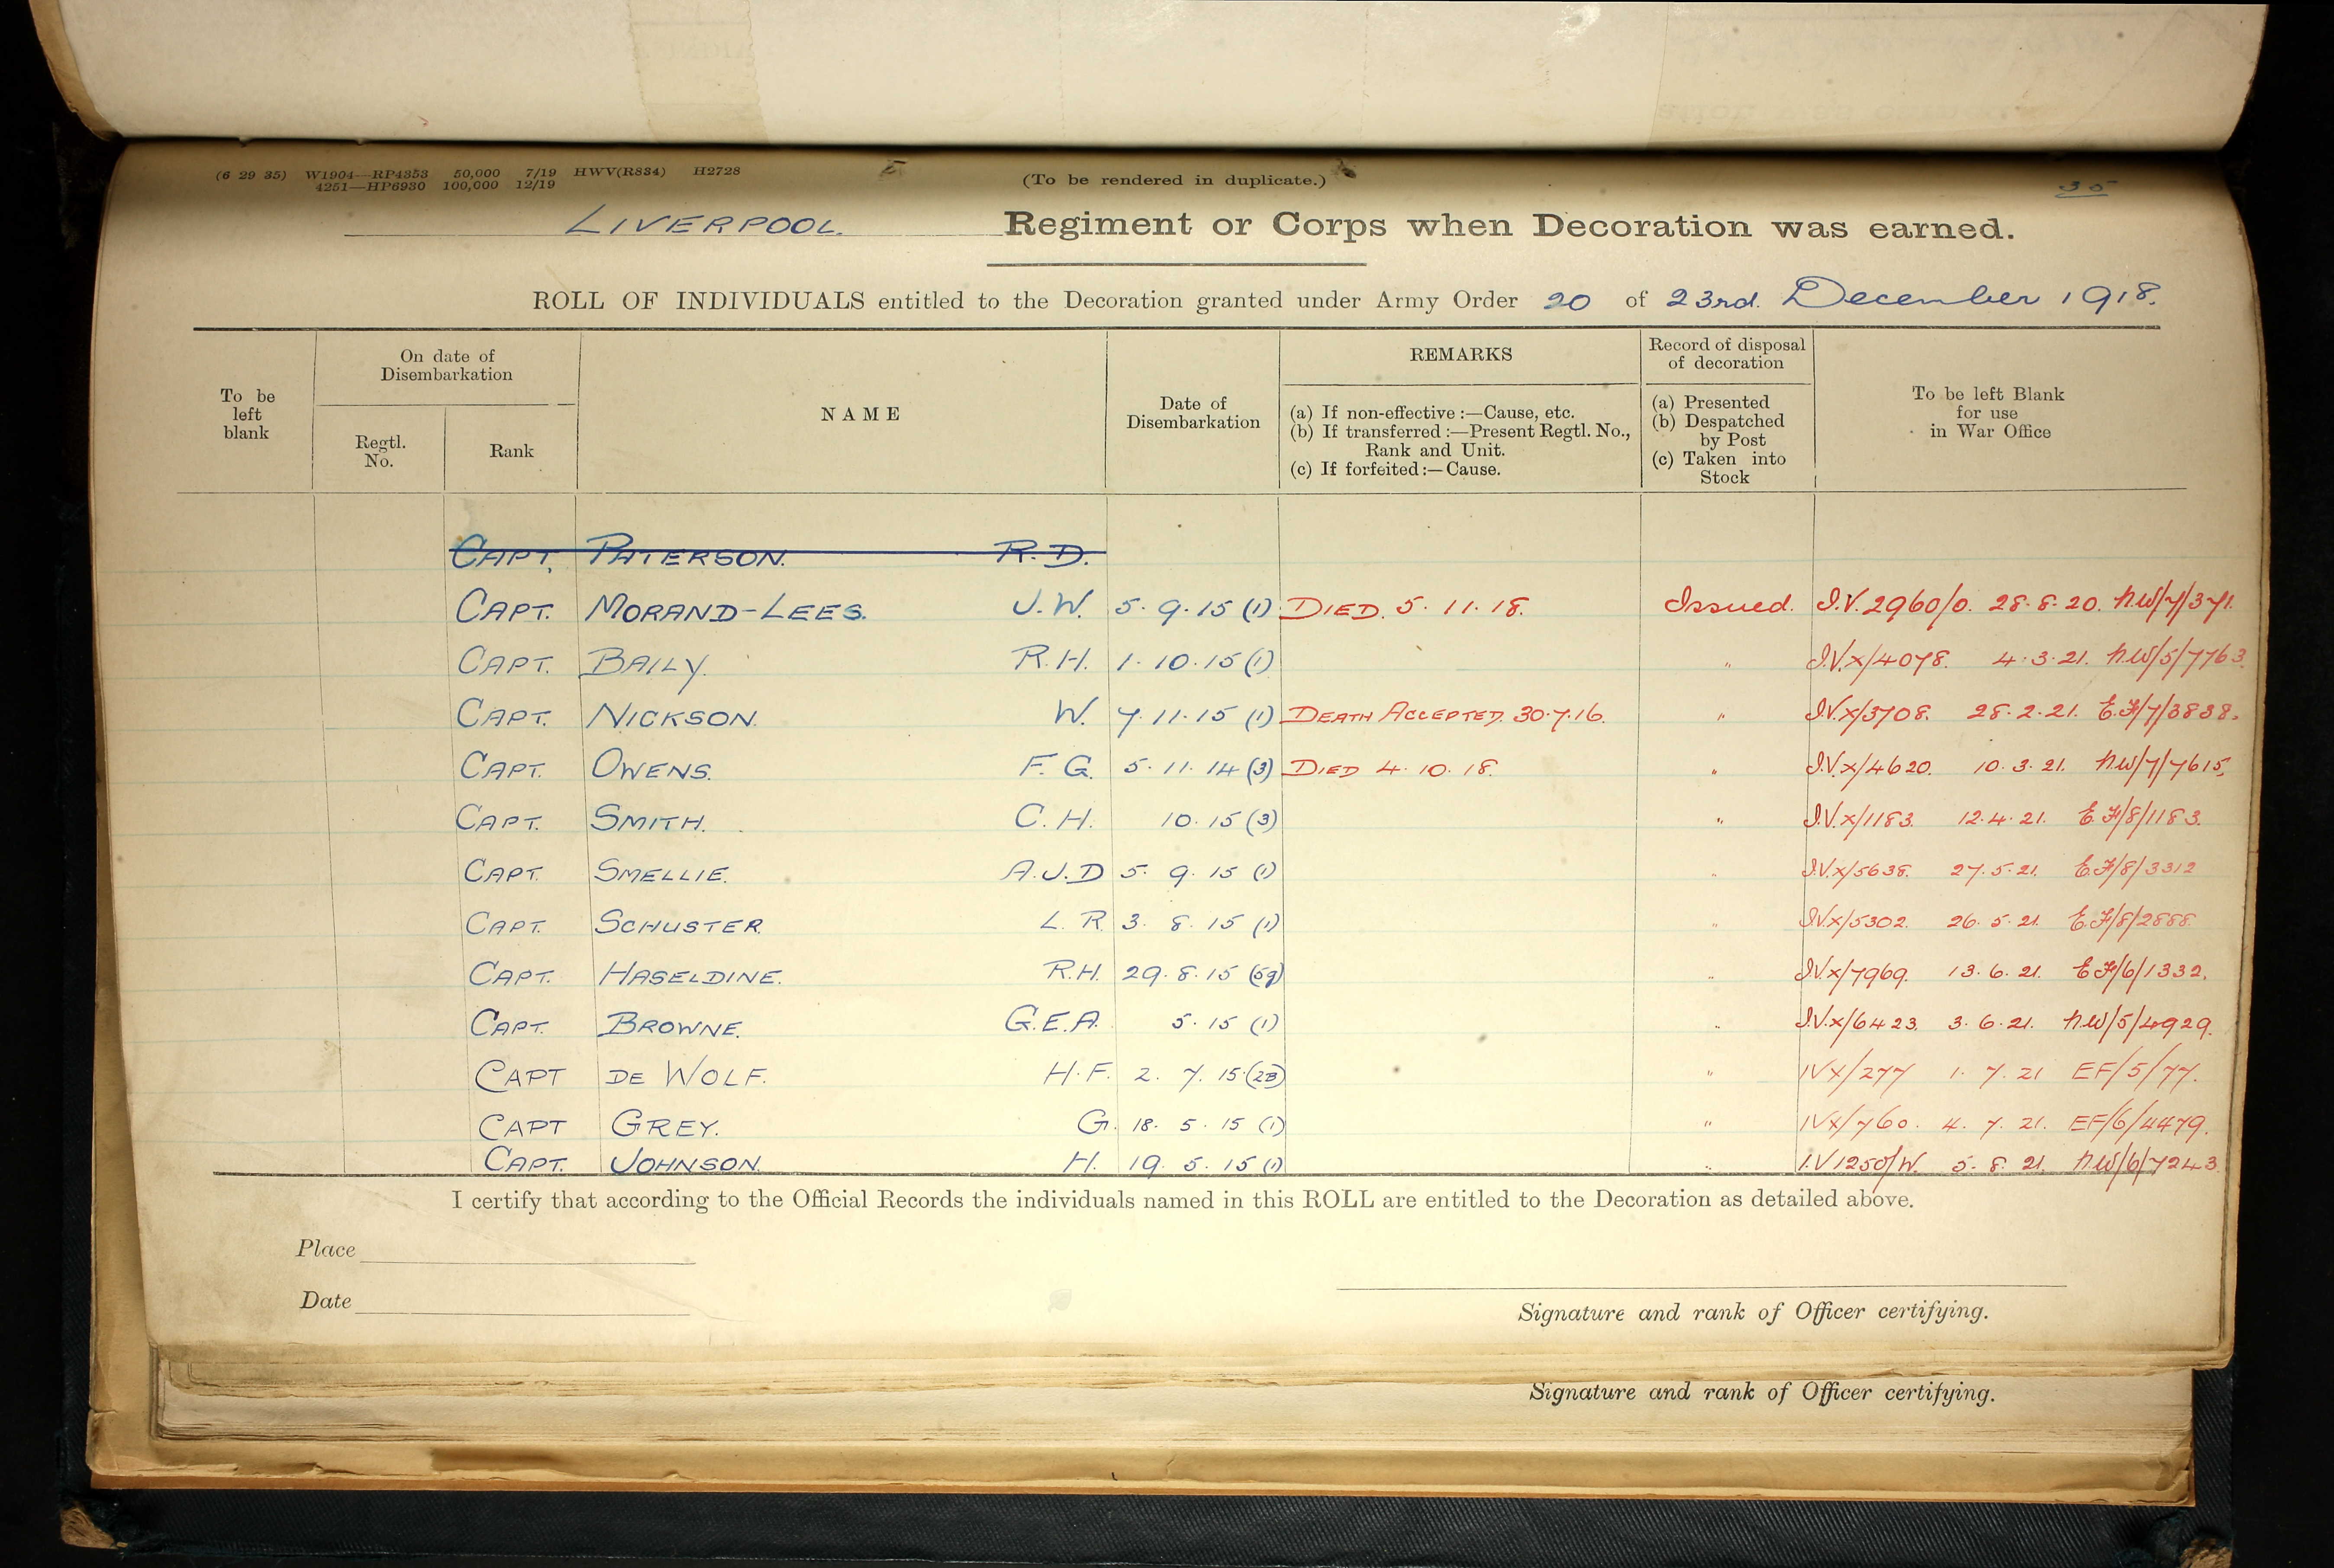 (6 29 35) W1904—RP4353 50,000 7/19 HWV(R834) H2728
4251—HP6930 100,000 12/19
(To be rendered in duplicate.)
35
LIVERPOOL. Regiment or Corps when Decoration was earned.
ROLL OF INDIVIDUALS entitled to the Decoration granted under Army Order 20 of 23rd. December 1918.
To be left blank
On date of Disembarkation
Regtl. No.
Rank
NAME
Date of Disembarkation
REMARKS
(a) If non-effective :—Cause, etc.
(b) If transferred :—Present Regtl. No., Rank and Unit.
(c) If forfeited :—Cause.
Record of disposal of decoration
(a) Presented
(b) Despatched by Post
(c) Taken into Stock
To be left Blank for use in War Office
CAPT. PATERSON. R.D.
CAPT. MORAND-LEES. J.W. 5.9.15 (1) DIED. 5.11.18. Issued. I.V.2960/O. 28.8.20. N.W/7/371.
CAPT. BAILY. R.H. 1.10.15 (1) " I.V.X/4078. 4.3.21. N.W/5/7763
CAPT. NICKSON. W. 7.11.15 (1) DEATH ACCEPTED. 30.7.16. " I.V.X/3708. 28.2.21. E.F/7/3838.
CAPT. OWENS. F.G. 5.11.14 (3) DIED 4.10.18. " I.V.X/4620. 10.3.21. N.W/7/7615.
CAPT. SMITH. C.H. 10.15 (3) " I.V.X/1183. 12.4.21. E.F/8/1183.
CAPT. SMELLIE. A.J.D 5.9.15 (1) " I.V.X/5638. 27.5.21. E.F/8/3312
CAPT. SCHUSTER. L.R. 3.8.15 (1) " I.V.X/5302. 26.5.21. E.F/8/2888.
CAPT. HASELDINE. R.H. 29.8.15 (5g) " I.V.X/7969. 13.6.21. E.F/6/1332.
CAPT. BROWNE. G.E.A. 5.15 (1) " I.V.X/6423. 3.6.21. N.W/5/4929.
CAPT DE WOLF. H.F. 2.7.15.(2B) " IVX/277 1.7.21 EF/5/77.
CAPT GREY. G. 18.5.15 (1) " IVX/760. 4.7.21. EF/6/4479.
CAPT. JOHNSON. H. 19.5.15 (1) " I.V1250/W. 5.8.21. N.W/6/7243
I certify that according to the Official Records the individuals named in this ROLL are entitled to the Decoration as detailed above.
Place
Date
Signature and rank of Officer certifying.
Signature and rank of Officer certifying.